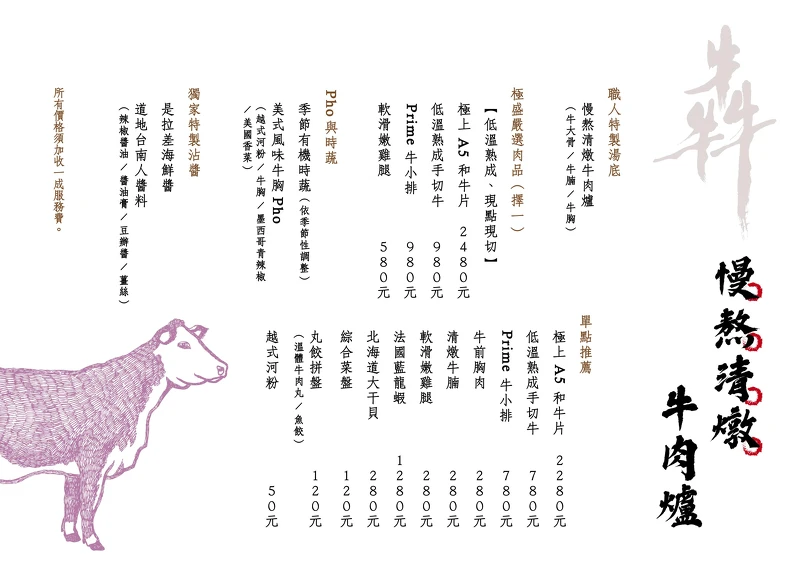 犇
慢熬清燉
牛肉爐
職人特製湯底
慢熬清燉牛肉爐
(牛大骨/牛腩/牛胸)
極盛嚴選肉品(擇一)
【低溫熟成、現點現切】
極上 A5 和牛片 2480元
低溫熟成手切牛 980元
Prime 牛小排 980元
軟滑嫩雞腿 580元
Pho 與時蔬
季節有機時蔬(依季節性調整)
美式風味牛胸 Pho
(越式河粉/牛胸/墨西哥青辣椒
/美國香菜)
獨家特製沾醬
是拉差海鮮醬
道地台南人醬料
(辣椒醬油/醬油膏/豆瓣醬/薑絲)
所有價格須加收一成服務費。
單點推薦
極上 A5 和牛片 2280元
低溫熟成手切牛 780元
Prime 牛小排 780元
牛前胸肉 280元
清燉牛腩 280元
軟滑嫩雞腿 280元
法國藍龍蝦 1280元
北海道大干貝 280元
綜合菜盤 120元
丸餃拼盤 120元
(溫體牛肉丸/魚餃)
越式河粉 50元